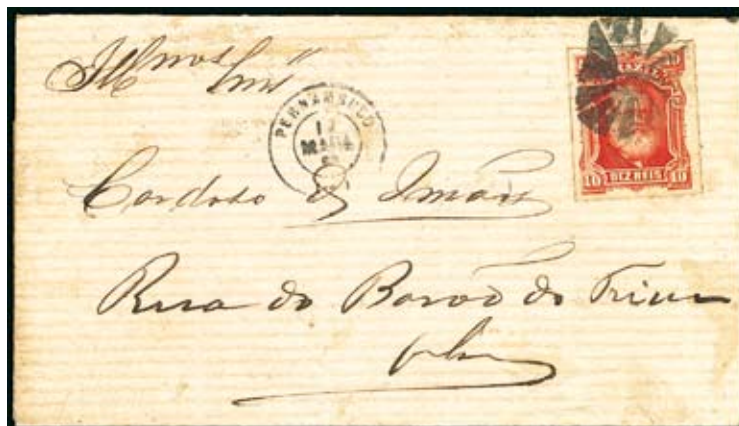 Illmos Snrs
PERNAMBUCO
BRAZIL
10 DEZ REIS 10
Cardoso & Irmão
Rua do Barão do Trium
pho